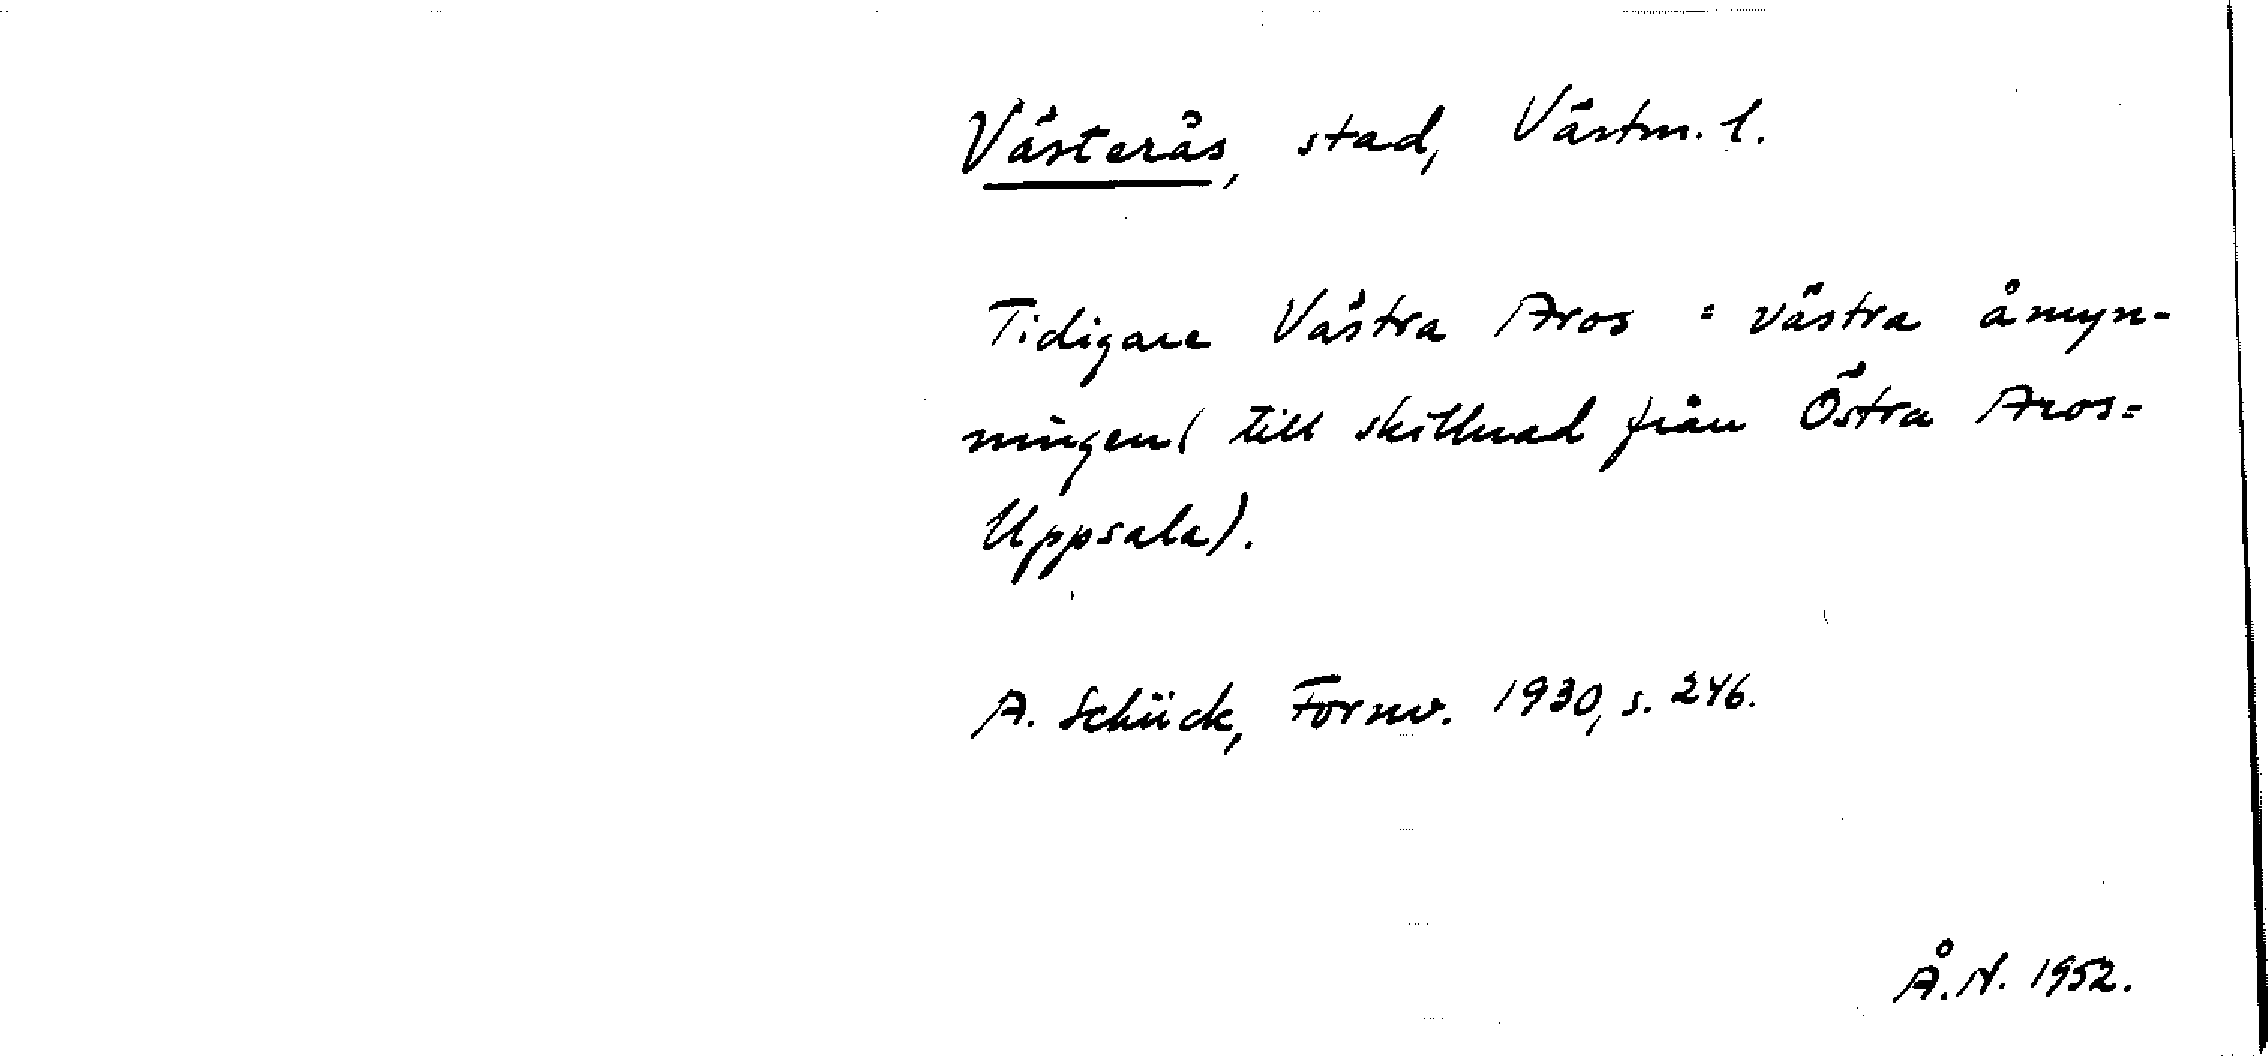 Västerås, stad, Västm. l.
Tidigare Västra Aros = västra åmyn-
ningen (till skillnad från Östra Aros=
Uppsala).
A. Schück, Fornv. 1930, s. 246.
Å. N. 1952.